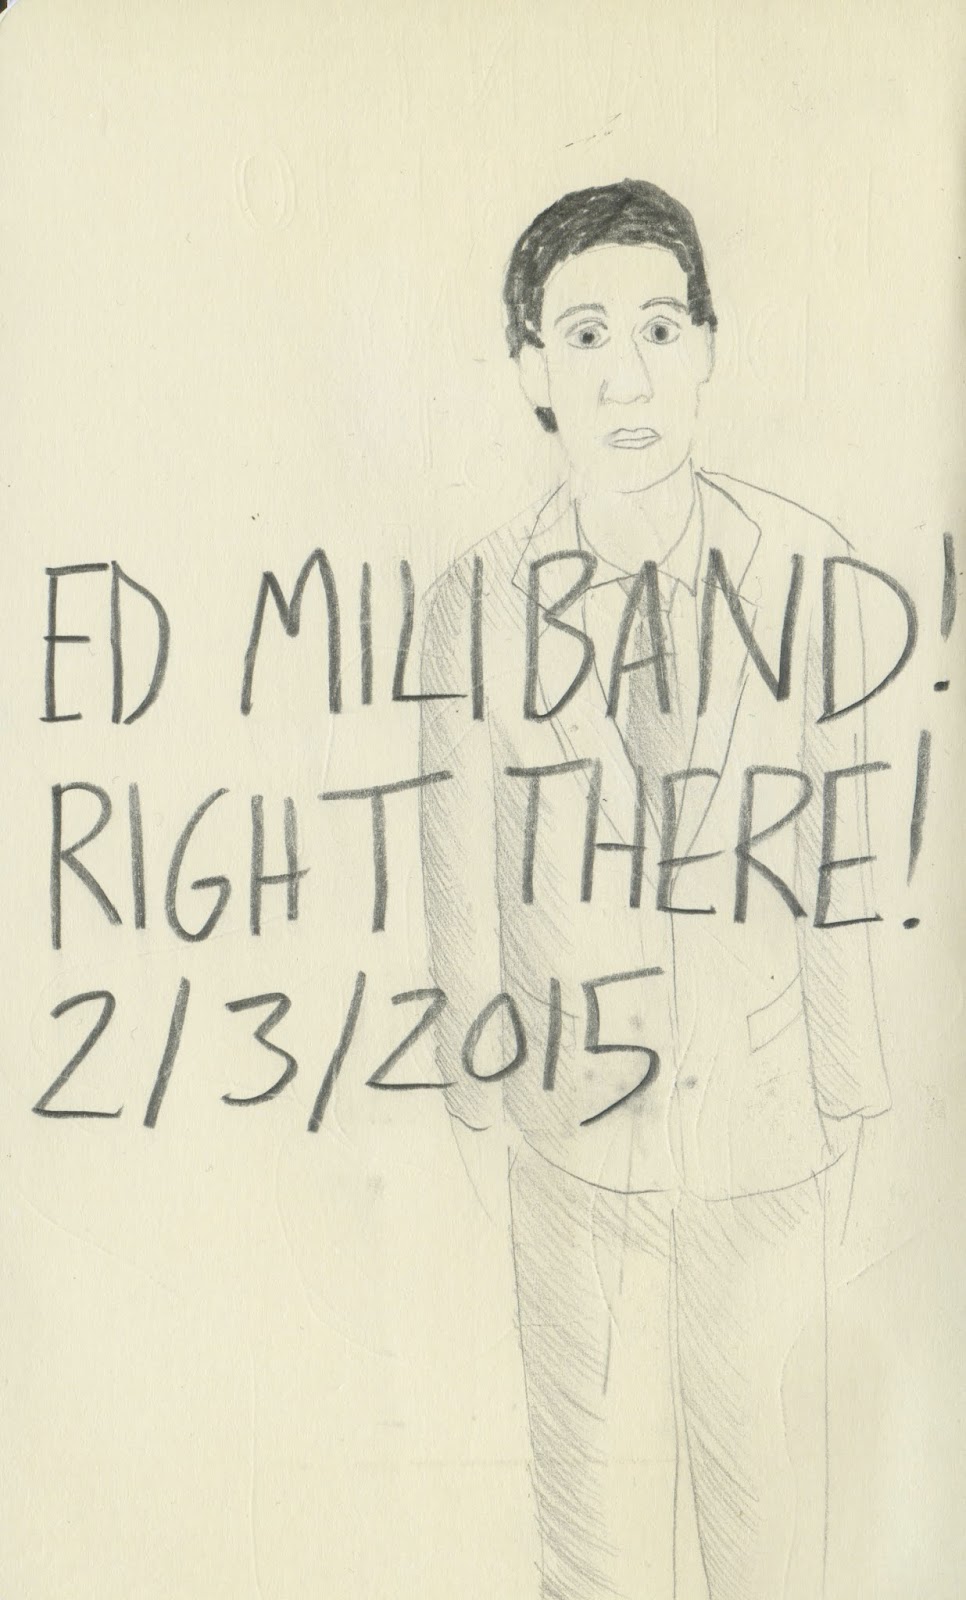 ED MILIBAND!
RIGHT THERE!
2/3/2015